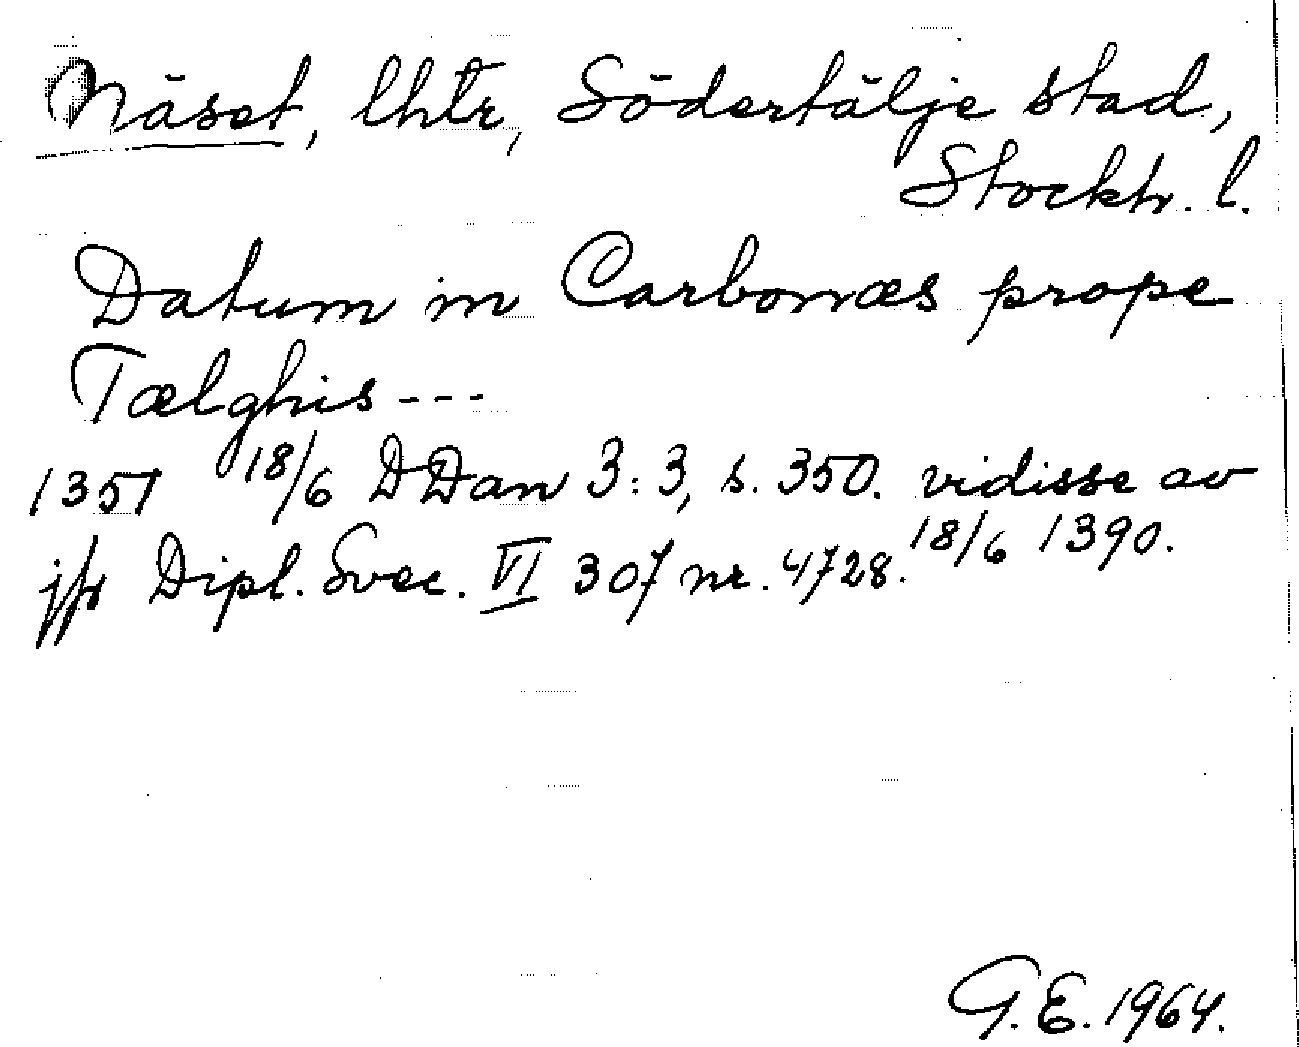 Näset, lhtr, Södertälje stad,
Stockh. l.
Datum in Carbonæs prope
Tælghis ---
1351 18/6 DDan 3:3, s. 350. vidisse av
18/6 1390.
jfr Dipl. Svec. VI 307 nr. 4728.
G.E. 1964.